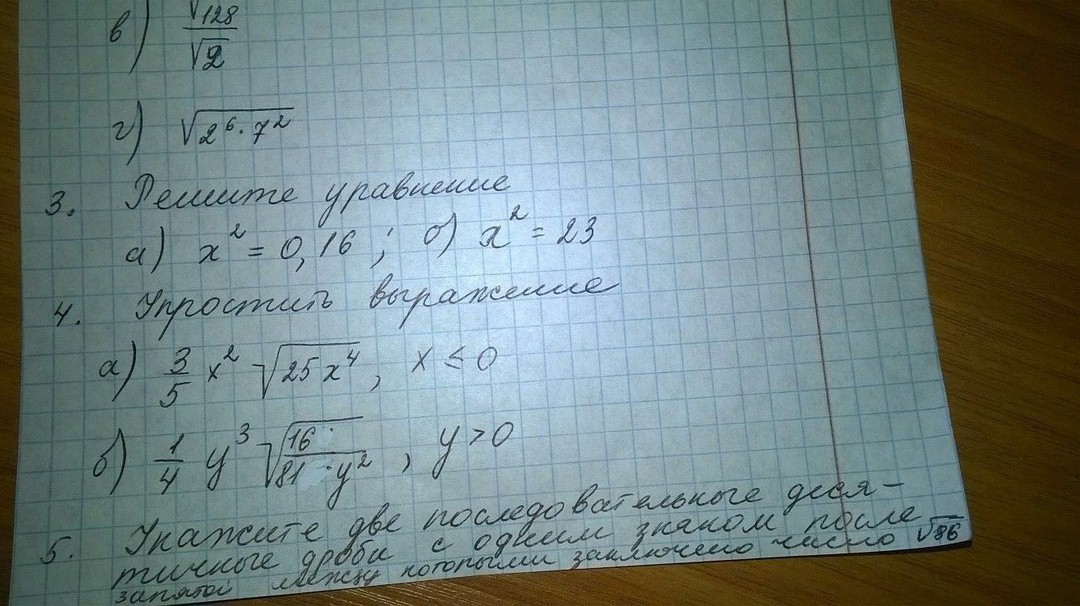 в) √128/√2
г) √(2⁶·7²)
3. Решите уравнение
а) x² = 0,16 ; б) x² = 23
4. Упростить выражение
а) 3/5 x² √(25x⁴) , x ≤ 0
б) 1/4 y³ √(16/(81·y²)) , y > 0
5. Укажите две последовательные деся-
тичные дроби с одним знаком после
запятой между которыми заключено число √86